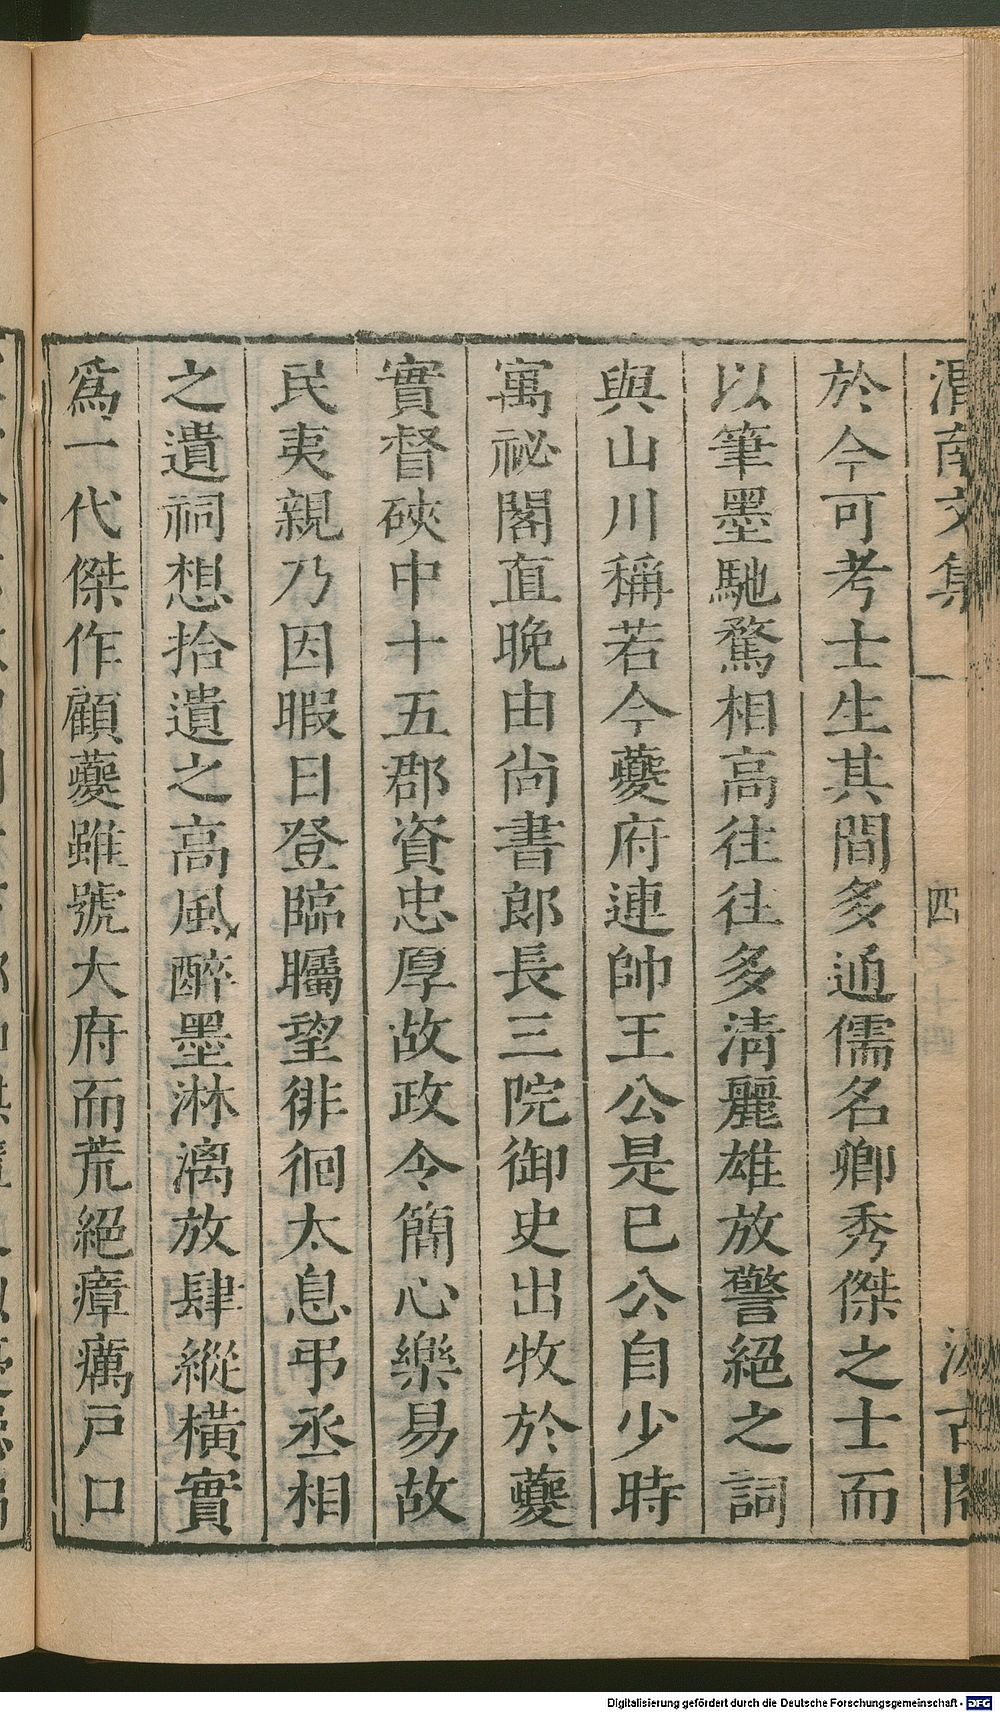 渭南文集 一 四 汲古閣
於今可考士生其間多通儒名卿秀傑之士而
以筆墨馳騖相高往往多清麗雄放警絕之詞
與山川稱若今夔府連帥王公是已公自少時
寓祕閣直晚由尚書郎長三院御史出牧於夔
實督硤中十五郡資忠厚故政令簡心樂易故
民夷親乃因暇日登臨矚望徘徊太息弔丞相
之遺祠想拾遺之高風醉墨淋漓放肆縱橫實
爲一代傑作顧夔雖號大府而荒絕瘴癘戶口
Digitalisierung gefördert durch die Deutsche Forschungsgemeinschaft - DFG